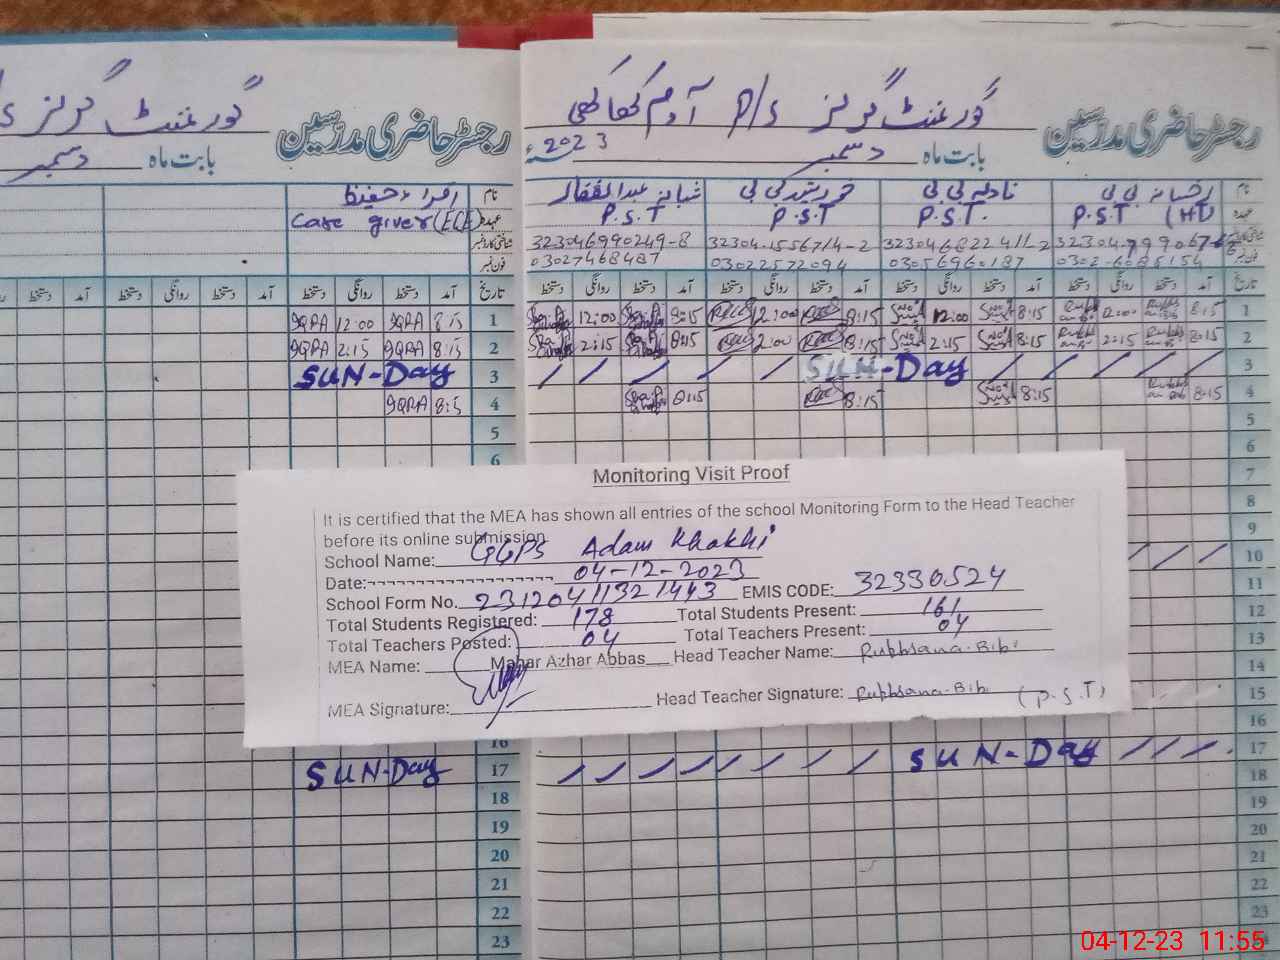 گورنمنٹ گرلز P/S آدم کھاکھی
رجسٹر حاضری مدرسین
بابت ماہ دسمبر 2023ء
نام رخسانہ بی بی نادیہ بی بی خورشید بی بی شبانہ عبدالغفار
عہدہ P.S.T (HT) P.S.T. P.S.T P.S.T
شناختی کارڈ نمبر 32304-6822411-2 32304-1556714-2 32304-6990249-8
فون نمبر 0302-6085154 03056960187 03022572094 03027468487
تاریخ آمد دستخط روانگی دستخط آمد دستخط روانگی دستخط آمد دستخط روانگی دستخط آمد دستخط روانگی دستخط
1 8:15 12:00 8:15 12:00 8:15 12:00 8:15 12:00
2 8:15 2:15 8:15 2:15 8:15 2:00 8:15 2:15
3 SUN-Day
4 8:15 8:15 8:15 8:15
5
6
7
8
9
10
11
12
13
14
15
16
17 SUN-Day
18
19
20
21
22
23
گورنمنٹ گرلز
رجسٹر حاضری مدرسین
بابت ماہ دسمبر
نام اقراء حفیظ
عہدہ Care giver (ECE)
شناختی کارڈ نمبر
فون نمبر
تاریخ آمد دستخط روانگی دستخط آمد دستخط روانگی دستخط آمد
1 8:15 IQRA 12:00 IQRA
2 8:15 IQRA 2:15 IQRA
3 SUN-Day
4 8:15 IQRA
5
6
16
17 SUN-Day
18
19
20
21
22
23
Monitoring Visit Proof
It is certified that the MEA has shown all entries of the school Monitoring Form to the Head Teacher
before its online submission
School Name: GGPS Adam Khakhi
Date: 04-12-2023
School Form No. 23120411321443 EMIS CODE: 32330524
Total Students Registered: 178 Total Students Present: 161
Total Teachers Posted: 04 Total Teachers Present: 04
MEA Name: Mahar Azhar Abbas Head Teacher Name: Rukhsana Bibi
MEA Signature: Head Teacher Signature: Rukhsana Bibi (P.S.T)
04-12-23 11:55